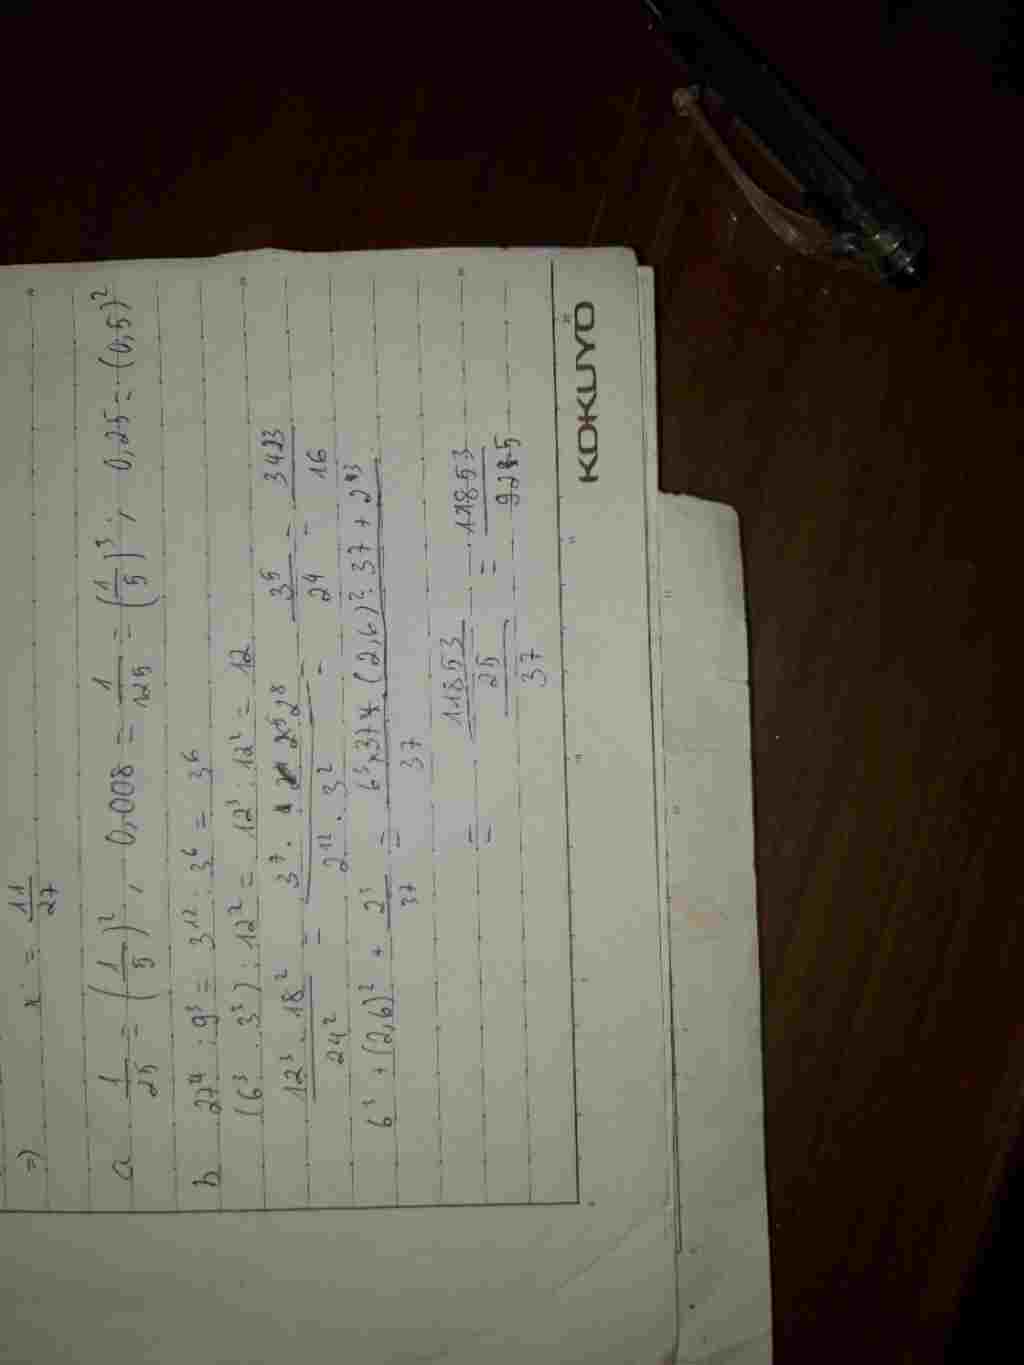 =) x = 11/27
a 1/25 = (1/5)², 0,008 = 1/125 = (1/5)³; 0,25 = (0,5)²
b 27⁴ : 9³ = 3¹² : 3⁶ = 3⁶
(6³ : 3³) : 12² = 12³ : 12² = 12
12³ . 18² / 24² = 3⁷ . 2⁸ / 2¹² . 3² = 3⁵ / 2⁴ = 3423 / 16
6³ + (2,6)² + 2³ / 37 = 6³ x 37 + (2,6)² . 37 + 2³ / 37
= 11853 / 25 / 37 = 11853 / 925
KOKUYO